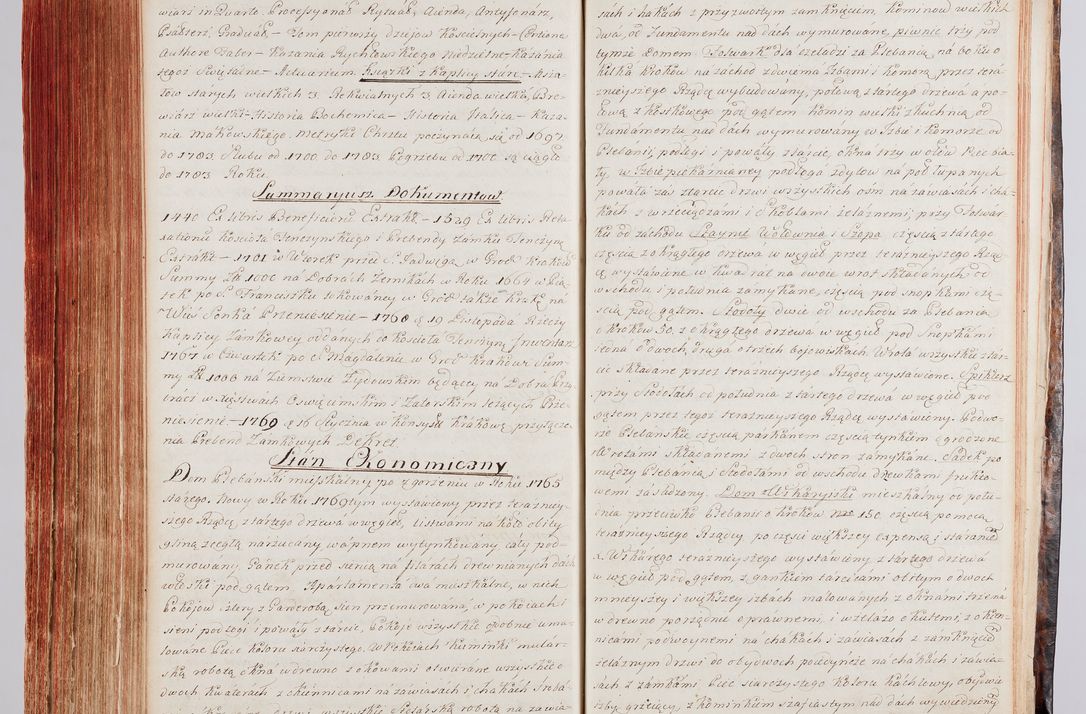 wiari in Quarto. Processyonał Rytuał, Aienda, Antyfonarz,
Psałterz, Graduał, – Tom pierwszy dziejow Koscielnych –
Authore Tater – Kazania Rychłowskiego Niedzielne – Kazania
tegoż Swiętalne – Actuarium. Książki z Kaplicy stare – Msza
łow starych wielkich 3. Rekwialnych 3. Aienda wielka, Bre-
wiarz wielki – Historia Bochemica – Historia Italica – Kaza-
nia Makowskiego. Metryki Chrztu poczynaią się od 1697
do 1783 Slubu od 1700 do 1783 Pogrzebu od 1700 są ciągłe
do 1783 Roku
Summaryusz Dokumentow
1440 Ex Libris Beneficioru Extrakt – 1529 Ex Libris Reta-
xationu Kościoła Tenczynskiego i Prebendy Zamku Tenczyna
Extrakt – 1701 w Wtorek przed S. Jadwigą w Grod Krakow
Summy Zł 1000 na Dobrach Zernikach w Roku 1664 w Pią-
tek po S. Franciszku lokowaney w Grod także Krakᵗ na
Wieś Sonka Przeniesienie – 1768 d 19 Listopada Rzeczy
Kaplicy Zamkowey oddanych do Kościoła Tenczyn Inwentarz
1767 w Czwartek po S. Magdalenie w Grod Krakow Sum-
my Zł 1000 na Ziemstwie Zydowskim będącey na Dobra
w Xięstwach Oswięcimskim i Zatorskim leżących Prze-
niesienie – 1769 d 16 Stycznia w Konsyst Krakow przyłącze-
nia Prebend Zamkowych Dekret
Stan Ekonomiczny
Dom Plebański mieszkalny po zgorzeniu w Roku 1765
starego. Nowy w Roku 1769tym wystawiony przez teraznie-
szego Rządcę, z tartego drzewa w węgieł, listwami na koło obity
gliną z cegłą narzucany wapnem wytynkowany cały pod-
murowany. Ganek przed sienią na filarach drewnianych dach
włoski pod gątem. Apartamenta dwa mieszkalne, w nich
Pokojow cztery z Garderobą, sien przemurowana, w pokojach i
sieni podłogi i powały z tarcic, Pokoje wszystkie ozdobnie uma-
lowane Piece koloru siarczystego. W Pokojach Kaminki mular-
ską robotą okna w drewno z okowami otwierane wszystkie o
dwoch kwaterach z okiennicami na zawiasach i chakach
drzwi wszystkie Stolarską robotą na zawia-
sach i hakach z przyzwoitym zamknięciem, Kominow wielkich
dwa, od Fundamentu nad dach wymurowane, piwnic trzy pod
tymże Domem. Folwark dla czeladzi za Plebanią na boku o
kilka krokow na zachod z dwiema Izbami i Komorą przez tera-
znieyszego Rządcę wybudowany, połową z tartego drzewa a po-
łową z kostkowego pod gątem. Komin wielki z kuchnią od
Fundamentu nad dach wymurowany w Izbie i Komorze od
Plebanii, podłogi i powały z tarcic, okna trzy w ołow Piec bia-
ły, w Izbie piekarnianey podłoga z dylow na poł łupanych
powała zaś z tarcic drzwi wszystkich osm na zawiasach i cha-
kach z wrzeciądzami i skoblami żelaznemi, przy Folwar-
ku od zachodu Stayni, Wołownia i Szopa częścią z tartego
częścią z okrągłego drzewa w węgieł przez teraznieyszego Rząd-
cę wystawione w kwadrat na dwoie wrot składanych od
wschodu i południa zamykane, częścią pod snopkami czę-
ścią pod gątem. Stodoły dwie od wschodu za Plebanią
o krokow 50, z okrągłego drzewa w węgieł pod snopkami
iedna o dwoch, druga o trzech bojowiskach. Wrota wszystkie tar-
cic składane przez teraznieyszego Rządcę wystawione. Spiklerz
przy Stodołach od południa z tartego drzewa w węgieł pod
gątem przez tegoż teraznieyszego Rządcę wystawiony. Podwo-
rze Plebańskie częścią parkanem częścią tynkiem ogrodzone
Wrotami składanemi z dwoch stron zamykane. Sadek po-
między Plebanią i Stodołami od wschodu drzewkami frukto-
wemi zasadzony. Dom Wikaryiski mieszkalny od połu-
dnia przeciwko Plebanii o krokow 150. częścią pomocą
teraznieyszego Rządcy po części większey expensą i staraniem
X. Wikarego teraznieyszego wystawiony z tartego drzewa
w węgieł pod gątem z gankiem tarcicami obitym o dwoch
mnieyszey i większey izbach malowanych z oknami trzema
w drewno porządnie oprawnemi, i w żelazo okutemi, z okien-
nicami podwoynemi na chakach i zawiasach z zamknięciem
żelaznym drzwi do obydwoch poiedyncze na chakach i zawia-
sach z zamkami Piec siarczystego koloru kachlowy, obydwie
izby grzeiący, z kominkiem szafiastym nad dach wywiedziony